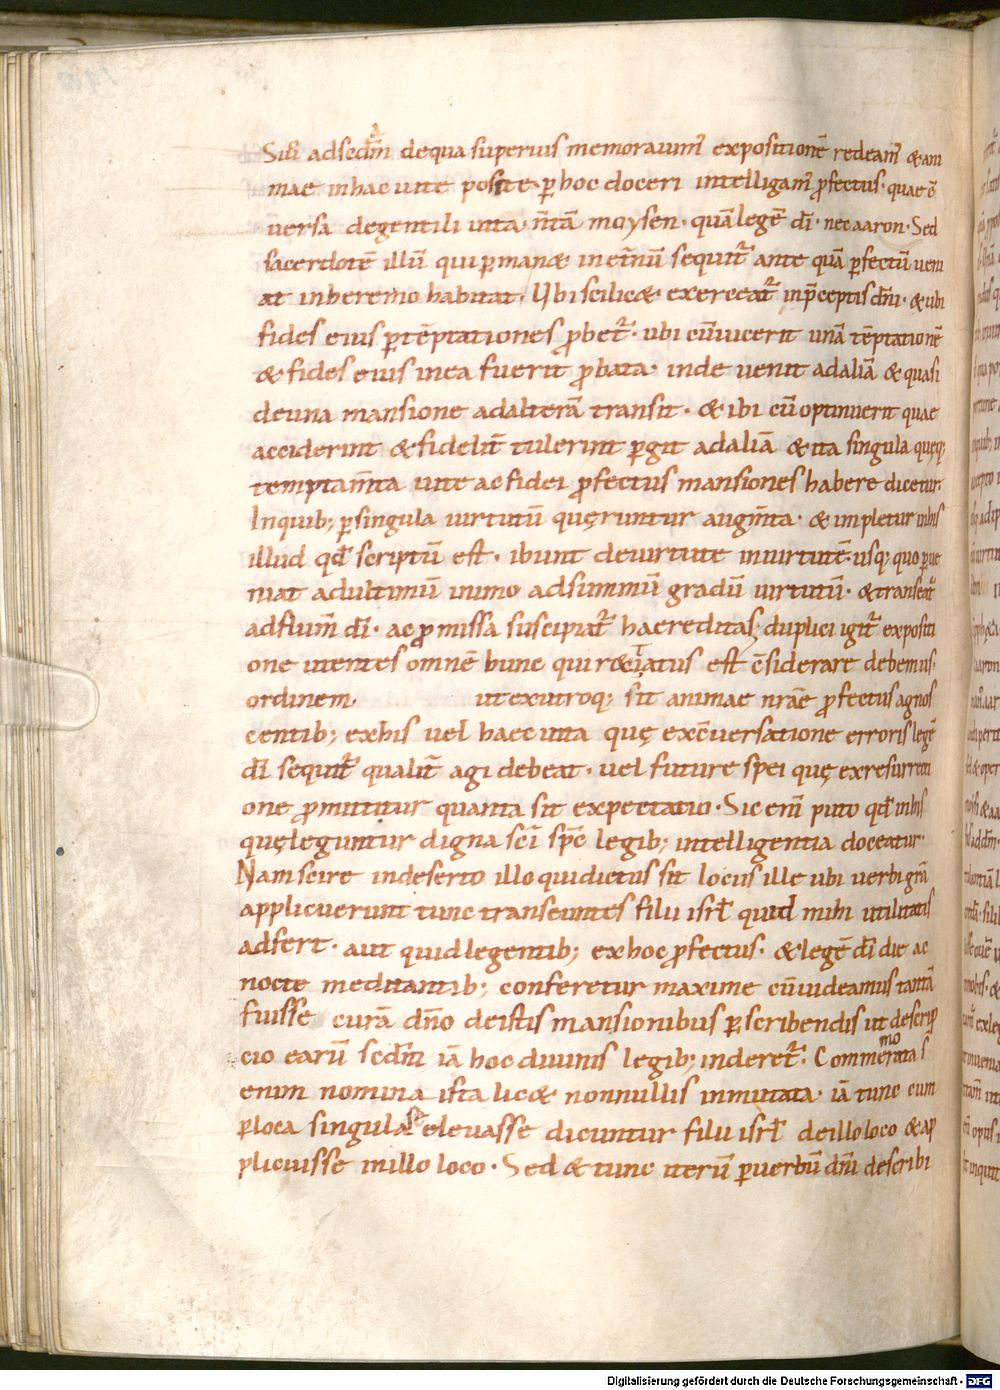 Si u̅ ad sedm̅ dequa superius memorauim᷒ expositionē redeam᷒ & ani
mae inhac uite posite ꝑ hoc doceri intelligam᷒ ꝓfectus · quae c̅
uersa degentili uita · n̅ tā moysen · quā legē dī · nec aaron · Sed
sacerdotē illū qui ꝑman& in et̅nū sequit᷑ ante quā ꝑfectū ueni
at inheremo habitat · Ubi scilic& exerceat᷑ inp̅ceptis dn̅i · & ubi
fides eius ꝑ tēptationes ꝓbet᷑ · ubi cū uicerit unā tēptationē
& fides eius inea fuerit ꝓbata · inde uenit ad aliā & quasi
deuna mansione ad alterā transit · & ibi cū optinuerit quae
acciderint & fidelit̅ tulerint ꝑgit ad aliā & ita singula quęq;
temptam̅ta uite ac fidei ꝓfectus mansiones habere dicetur·
Inquib; ꝑ singula uirtutū quęruntur augm̅ta · & impletur inhis
illud qd̅ scriptū est · ibunt de uirtute in uirtutē · usq; quo ꝑue
niat ad ultimū immo ad summū gradū uirtutū · & transeat᷑
ad flum̅ dī · ac ꝓmissā suscipiat᷑ haereditas; duplici igit᷑ expositi
one utentes omnē hunc qui recitatus est c̅siderare debemus·
ordinem · ut ex utroq; sit animae nr̅ae ꝓfectus agnos
centib; ex his uel haec uita quę ex c̅uersatione erroris legē
dī sequit᷑ qualit̅ agi debeat · uel future spei quę ex resurrecti
one ꝓmittitur quanta sit expectatio · Sic eni̅ puto qd̅ inhis
quę leguntur digna sc̅i sp̅c legib; intelligentia doceatur·
Nam scire indeserto illo quid ictus sit locus ille ubi uerbi grā
applicuerunt tunc transeuntes filii isrl̅ quid mihi utilitatis
adfert · aut quid legentib; ex hoc ꝓfectus · & legē dī die ac
nocte meditantib; conferetur maxime cū uideamus tantā
fuisse curā dn̅o de istis mansionibus ꝑscribendis ut descrip
cio earū sedm̅ iā hoc diuinis legib; inderet᷑ · Commemorata s̅
enim nomina ista lic& nonnullis inmutata · iā tunc cum
ꝑ loca singula se eleuasse dicuntur filii isrl̅ de illo loco & ap
plicuisse in illo loco · Sed & tunc iterū ꝑ uerbū dn̅i describi
Digitalisierung gefördert durch die Deutsche Forschungsgemeinschaft - DFG